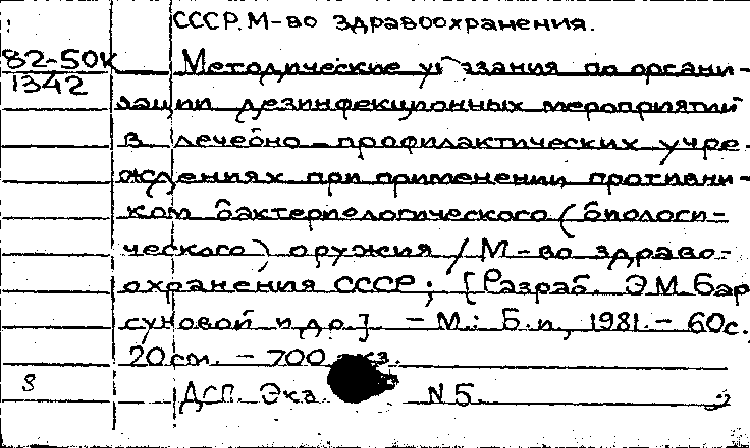 СССР. М-во здравоохранения.
82-50к
1342
Методические указания по органи-
зации дезинфекционных мероприятий
в лечебно-профилактических учре-
ждениях при применении противни-
ком бактериологического (биологи-
ческого) оружия / М-во здраво-
охранения СССР; [Разраб. Э.М. Бар
суновой и др.]. - М.: Б.и., 1981. - 60с.
20см. - 700 экз.
8
ДСП. Экз. N 5.